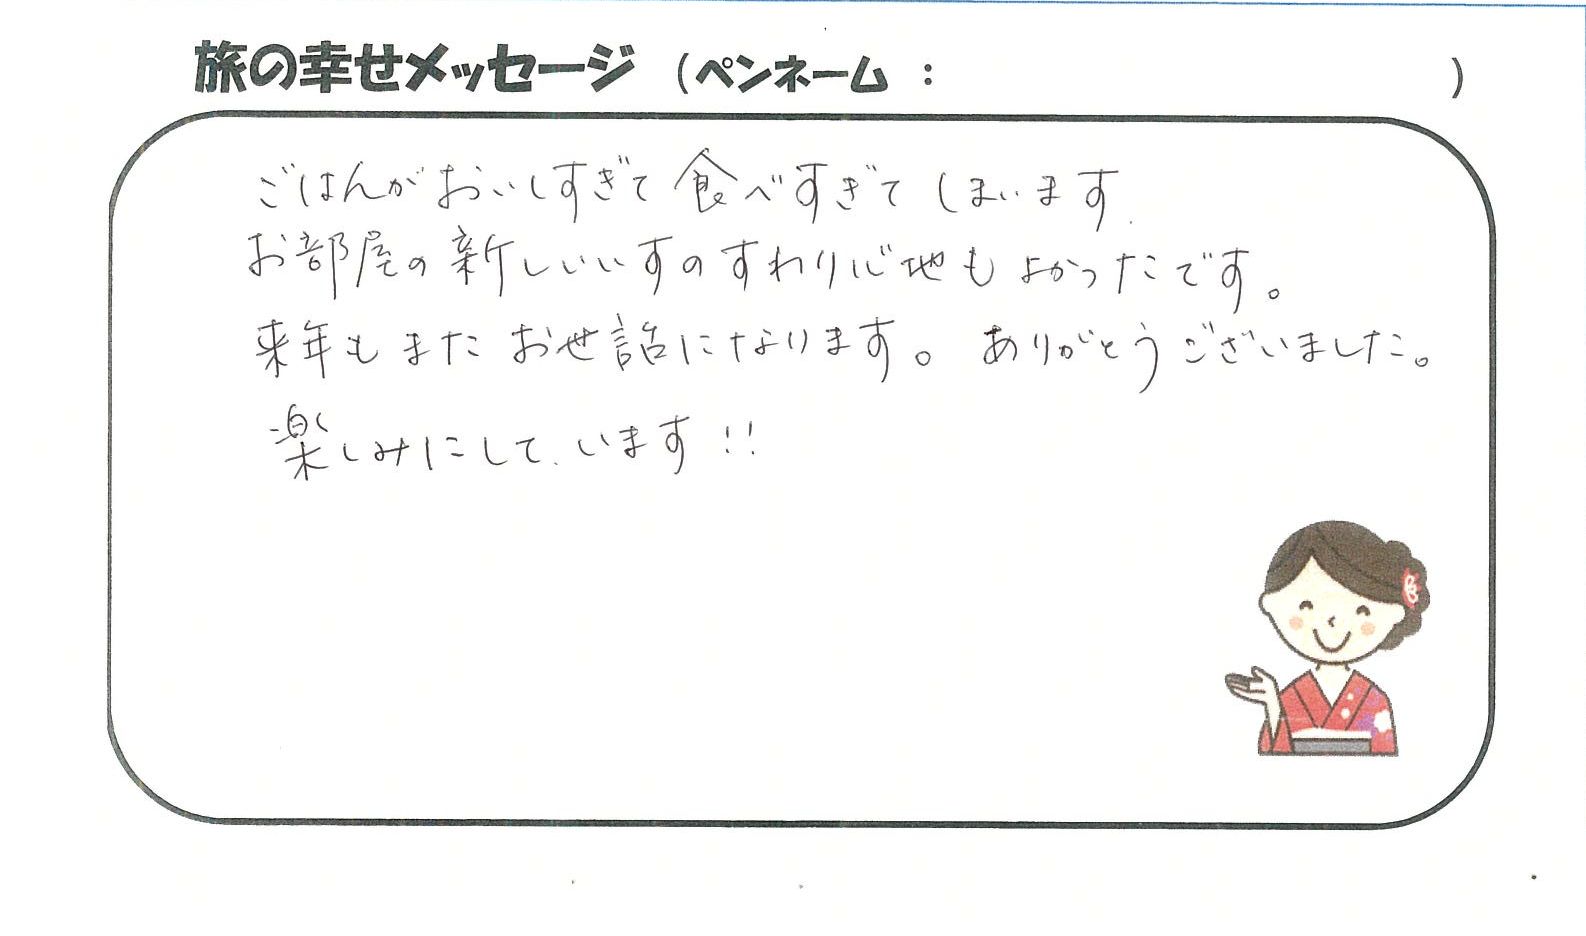 旅の幸せメッセージ (ペンネーム : )
ごはんがおいしすぎて食べすぎてしまいます.
お部屋の新しいいすのすわり心地もよかったです。
来年もまたお世話になります。ありがとうございました。
楽しみにして.います!!